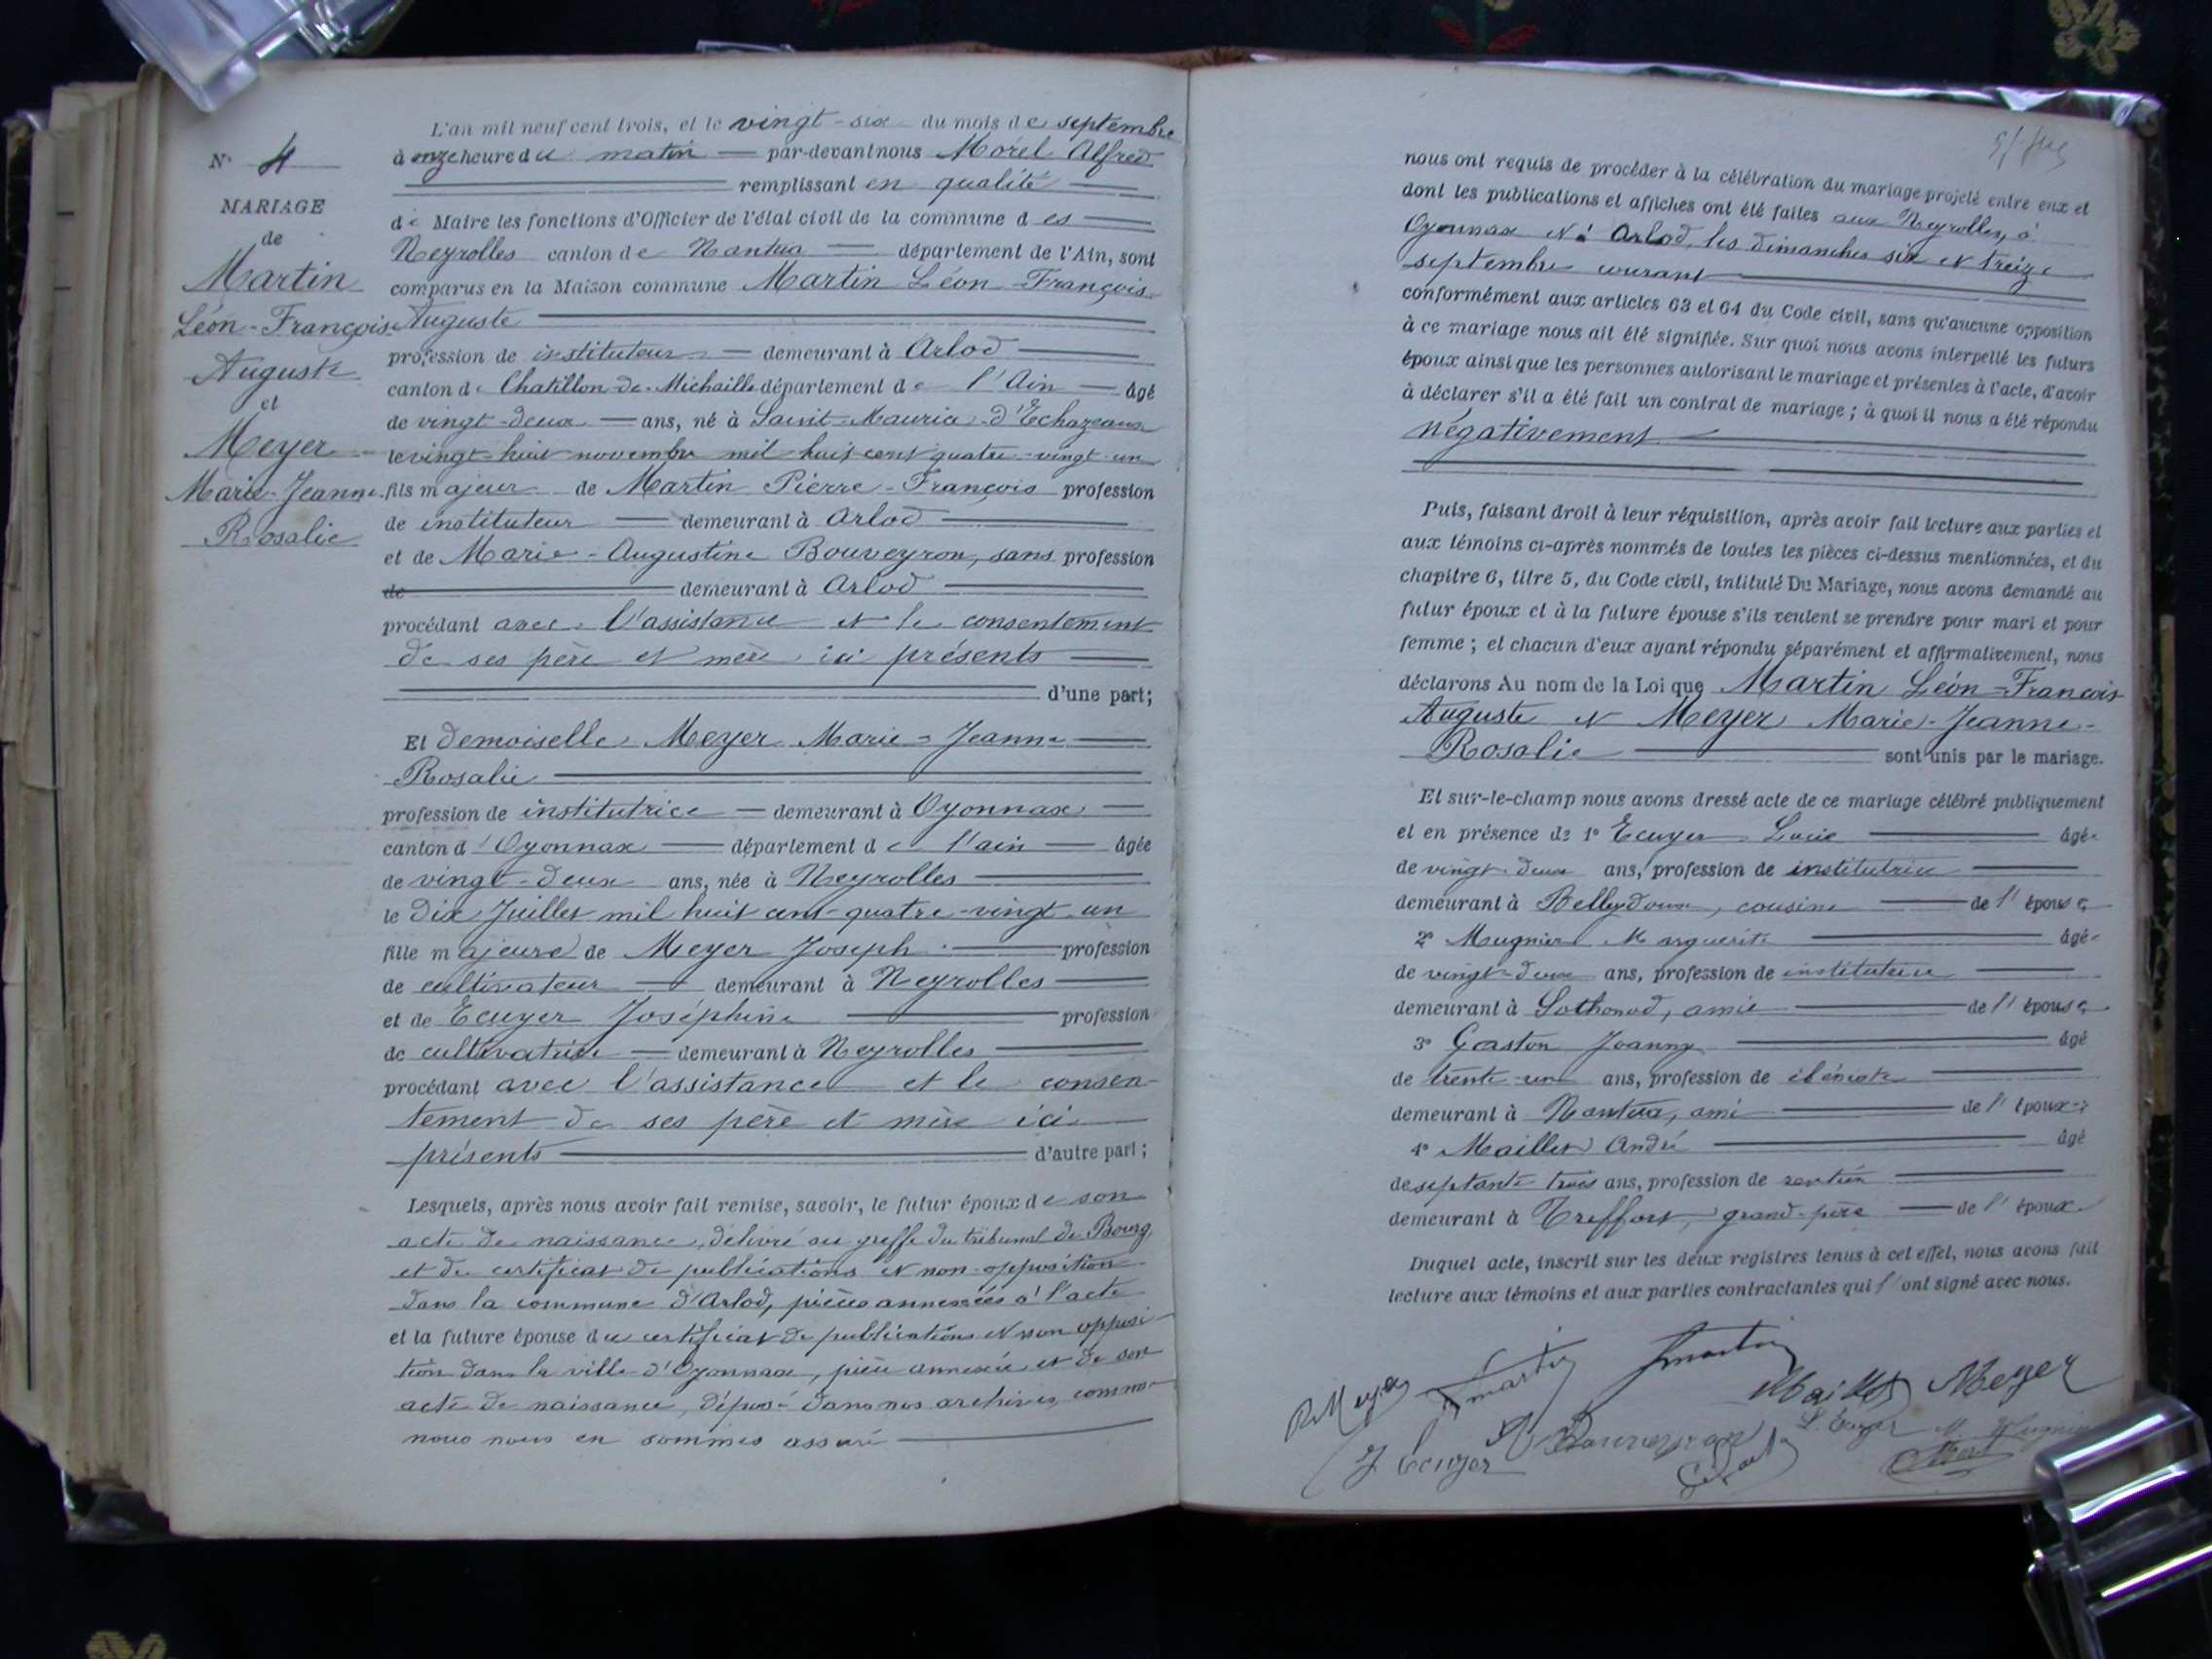 N° 4
MARIAGE
de
Martin
Léon-François
Auguste
et
Meyer
Marie-Jeanne
Rosalie
L'an mil neuf cent trois, et le vingt-six du mois de septembre
à onze heure du matin par-devant nous Morel Alfred
remplissant en qualité
de Maire les fonctions d'Officier de l'état civil de la commune des
Neyrolles canton de Nantua département de l'Ain, sont
comparus en la Maison commune Martin Léon-François
Auguste
profession de instituteur demeurant à Arlod
canton de Chatillon-de-Michaille département de l'Ain âgé
de vingt-deux ans, né à Saint-Maurice-d'Echazeaux
le vingt-huit novembre mil huit cent quatre-vingt-un
fils majeur de Martin Pierre-François profession
de instituteur demeurant à Arlod
et de Marie-Augustine Bouveyron, sans profession
de demeurant à Arlod
procédant avec l'assistance et le consentement
de ses père et mère ici présents
d'une part;
Et demoiselle Meyer Marie-Jeanne
Rosalie
profession de institutrice demeurant à Oyonnax
canton d'Oyonnax département de l'ain âgée
de vingt-deux ans, née à Neyrolles
le dix Juillet mil huit cent-quatre-vingt-un
fille majeure de Meyer Joseph profession
de cultivateur demeurant à Neyrolles
et de Ecuyer Joséphine profession
de cultivatrice demeurant à Neyrolles
procédant avec l'assistance et le consen-
tement de ses père et mère ici
présents d'autre part;
Lesquels, après nous avoir fait remise, savoir, le futur époux de son
acte de naissance, délivré au greffe du tribunal de Bourg,
et du certificat de publications et non-opposition
dans la commune d'Arlod, pièces annexées à l'acte
et la future épouse du certificat de publications et non opposi-
tion dans la ville d'Oyonnax, pièce annexée et de son
acte de naissance, déposé dans nos archives, comme
nous nous en sommes assuré
nous ont requis de procéder à la célébration du mariage projeté entre eux et
dont les publications et affiches ont été faites aux Neyrolles, à
Oyonnax et à Arlod, les dimanches six et treize
septembre courant
conformément aux articles 63 et 64 du Code civil, sans qu'aucune opposition
à ce mariage nous ait été signifiée. Sur quoi nous avons interpellé les futurs
époux ainsi que les personnes autorisant le mariage et présentes à l'acte, d'avoir
à déclarer s'il a été fait un contrat de mariage; à quoi il nous a été répondu
négativement
Puis, faisant droit à leur réquisition, après avoir fait lecture aux parties et
aux témoins ci-après nommés de toutes les pièces ci-dessus mentionnées, et du
chapitre 6, titre 5, du Code civil, intitulé Du Mariage, nous avons demandé au
futur époux et à la future épouse s'ils veulent se prendre pour mari et pour
femme; et chacun d'eux ayant répondu séparément et affirmativement, nous
déclarons Au nom de la Loi que Martin Léon-François
Auguste et Meyer Marie-Jeanne-
Rosalie sont unis par le mariage.
Et sur-le-champ nous avons dressé acte de ce mariage célébré publiquement
et en présence de 1° Ecuyer Lucie âgée
de vingt-deux ans, profession de institutrice
demeurant à Belleydoux, cousine de l'épouse
2° Mugnier Marguerite âgée
de vingt-deux ans, profession de institutrice
demeurant à Sothonod, amie de l'épouse
3° Gaston Joanny âgé
de trente-un ans, profession de ébéniste
demeurant à Nantua, ami de l'époux
4° Maillet André âgé
de septante trois ans, profession de rentier
demeurant à Treffort, grand-père de l'époux
Duquel acte, inscrit sur les deux registres tenus à cet effet, nous avons fait
lecture aux témoins et aux parties contractantes qui l'ont signé avec nous.
R. Meyer Martin Martin Maillet Meyer
J Ecuyer Bouveyron L. Ecuyer M. Mugnier
Morel